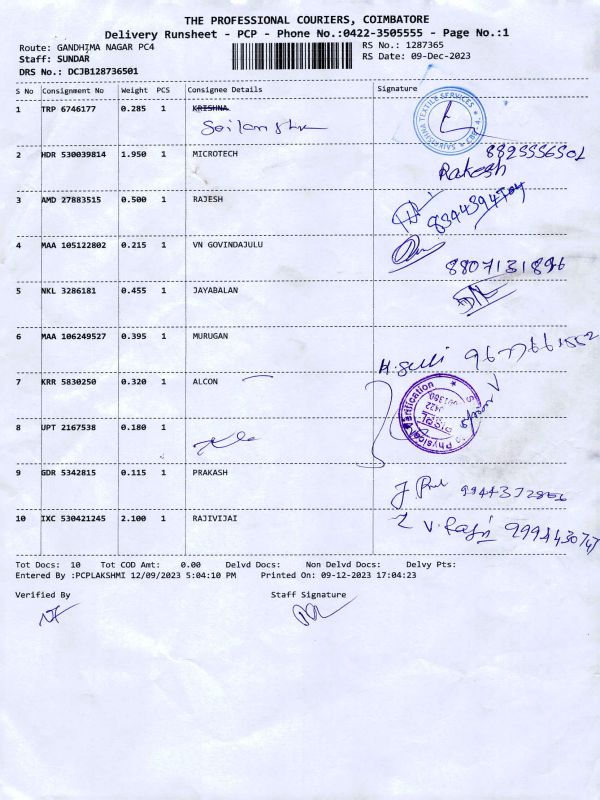 THE PROFESSIONAL COURIERS, COIMBATORE
Delivery Runsheet - PCP - Phone No.:0422-3505555 - Page No.:1
Route: GANDHIMA NAGAR PC4
RS No.: 1287365
Staff: SUNDAR
RS Date: 09-Dec-2023
DRS No.: DCJB128736501
S No Consignment No Weight PCS Consignee Details Signature
1 TRP 6746177 0.285 1 KRISHNA
2 HDR 530039814 1.950 1 MICROTECH
Rakesh
3 AMD 27883515 0.500 1 RAJESH
4 MAA 105122802 0.215 1 VN GOVINDAJULU
8807131896
5 NKL 3286181 0.455 1 JAYABALAN
6 MAA 106249527 0.395 1 MURUGAN
7 KRR 5830250 0.320 1 ALCON
8 UPT 2167538 0.180 1
9 GDR 5342815 0.115 1 PRAKASH
10 IXC 530421245 2.100 1 RAJIVIJAI
Tot Docs: 10 Tot COD Amt: 0.00 Delvd Docs: Non Delvd Docs: Delvy Pts:
Entered By :PCPLAKSHMI 12/09/2023 5:04:10 PM Printed On: 09-12-2023 17:04:23
Verified By Staff Signature